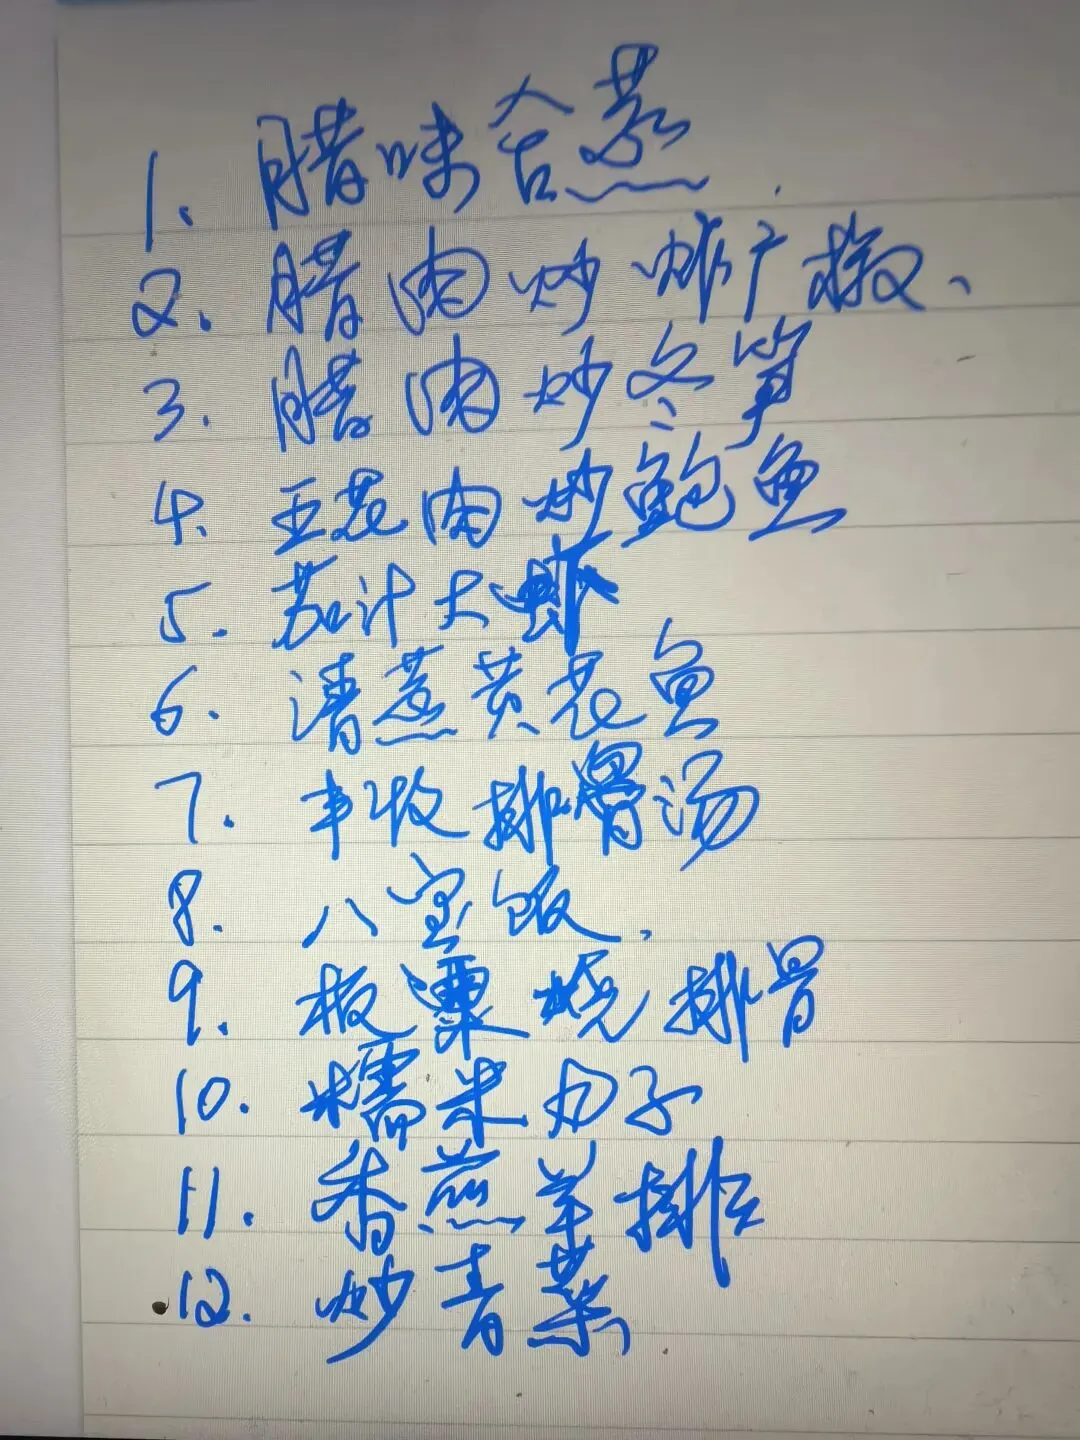 1. 腊味合蒸
2. 腊肉炒炸广椒、
3. 腊肉炒冬笋
4. 五花肉炒鲍鱼
5. 茄汁大虾
6. 清蒸黄花鱼
7. 丰收排骨汤
8. 八宝饭.
9. 板栗烧排骨
10. 糯米丸子
11. 香煎羊排
12. 炒青菜